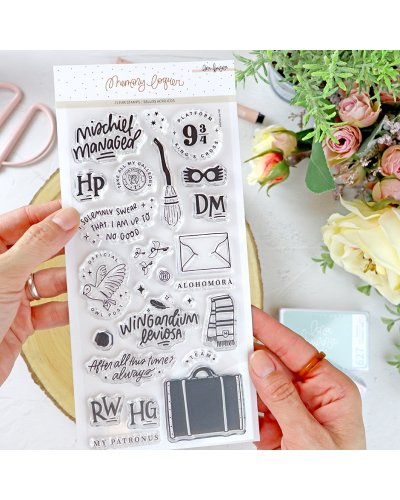 Memory Loquer
CLEAR STAMPS / SELLOS ACRÍLICOS
mischief
managed
PLATFORM
9 3/4
KING'S CROSS
Hp
DM
I SOLEMNLY SWEAR
THAT I AM UP TO
NO GOOD
OFFICIAL
OWL POST
ALOHOMORA
WINGARDIUM
leviosa
After all this time?
always
TEAM
RW
HG
MY PATRONUS